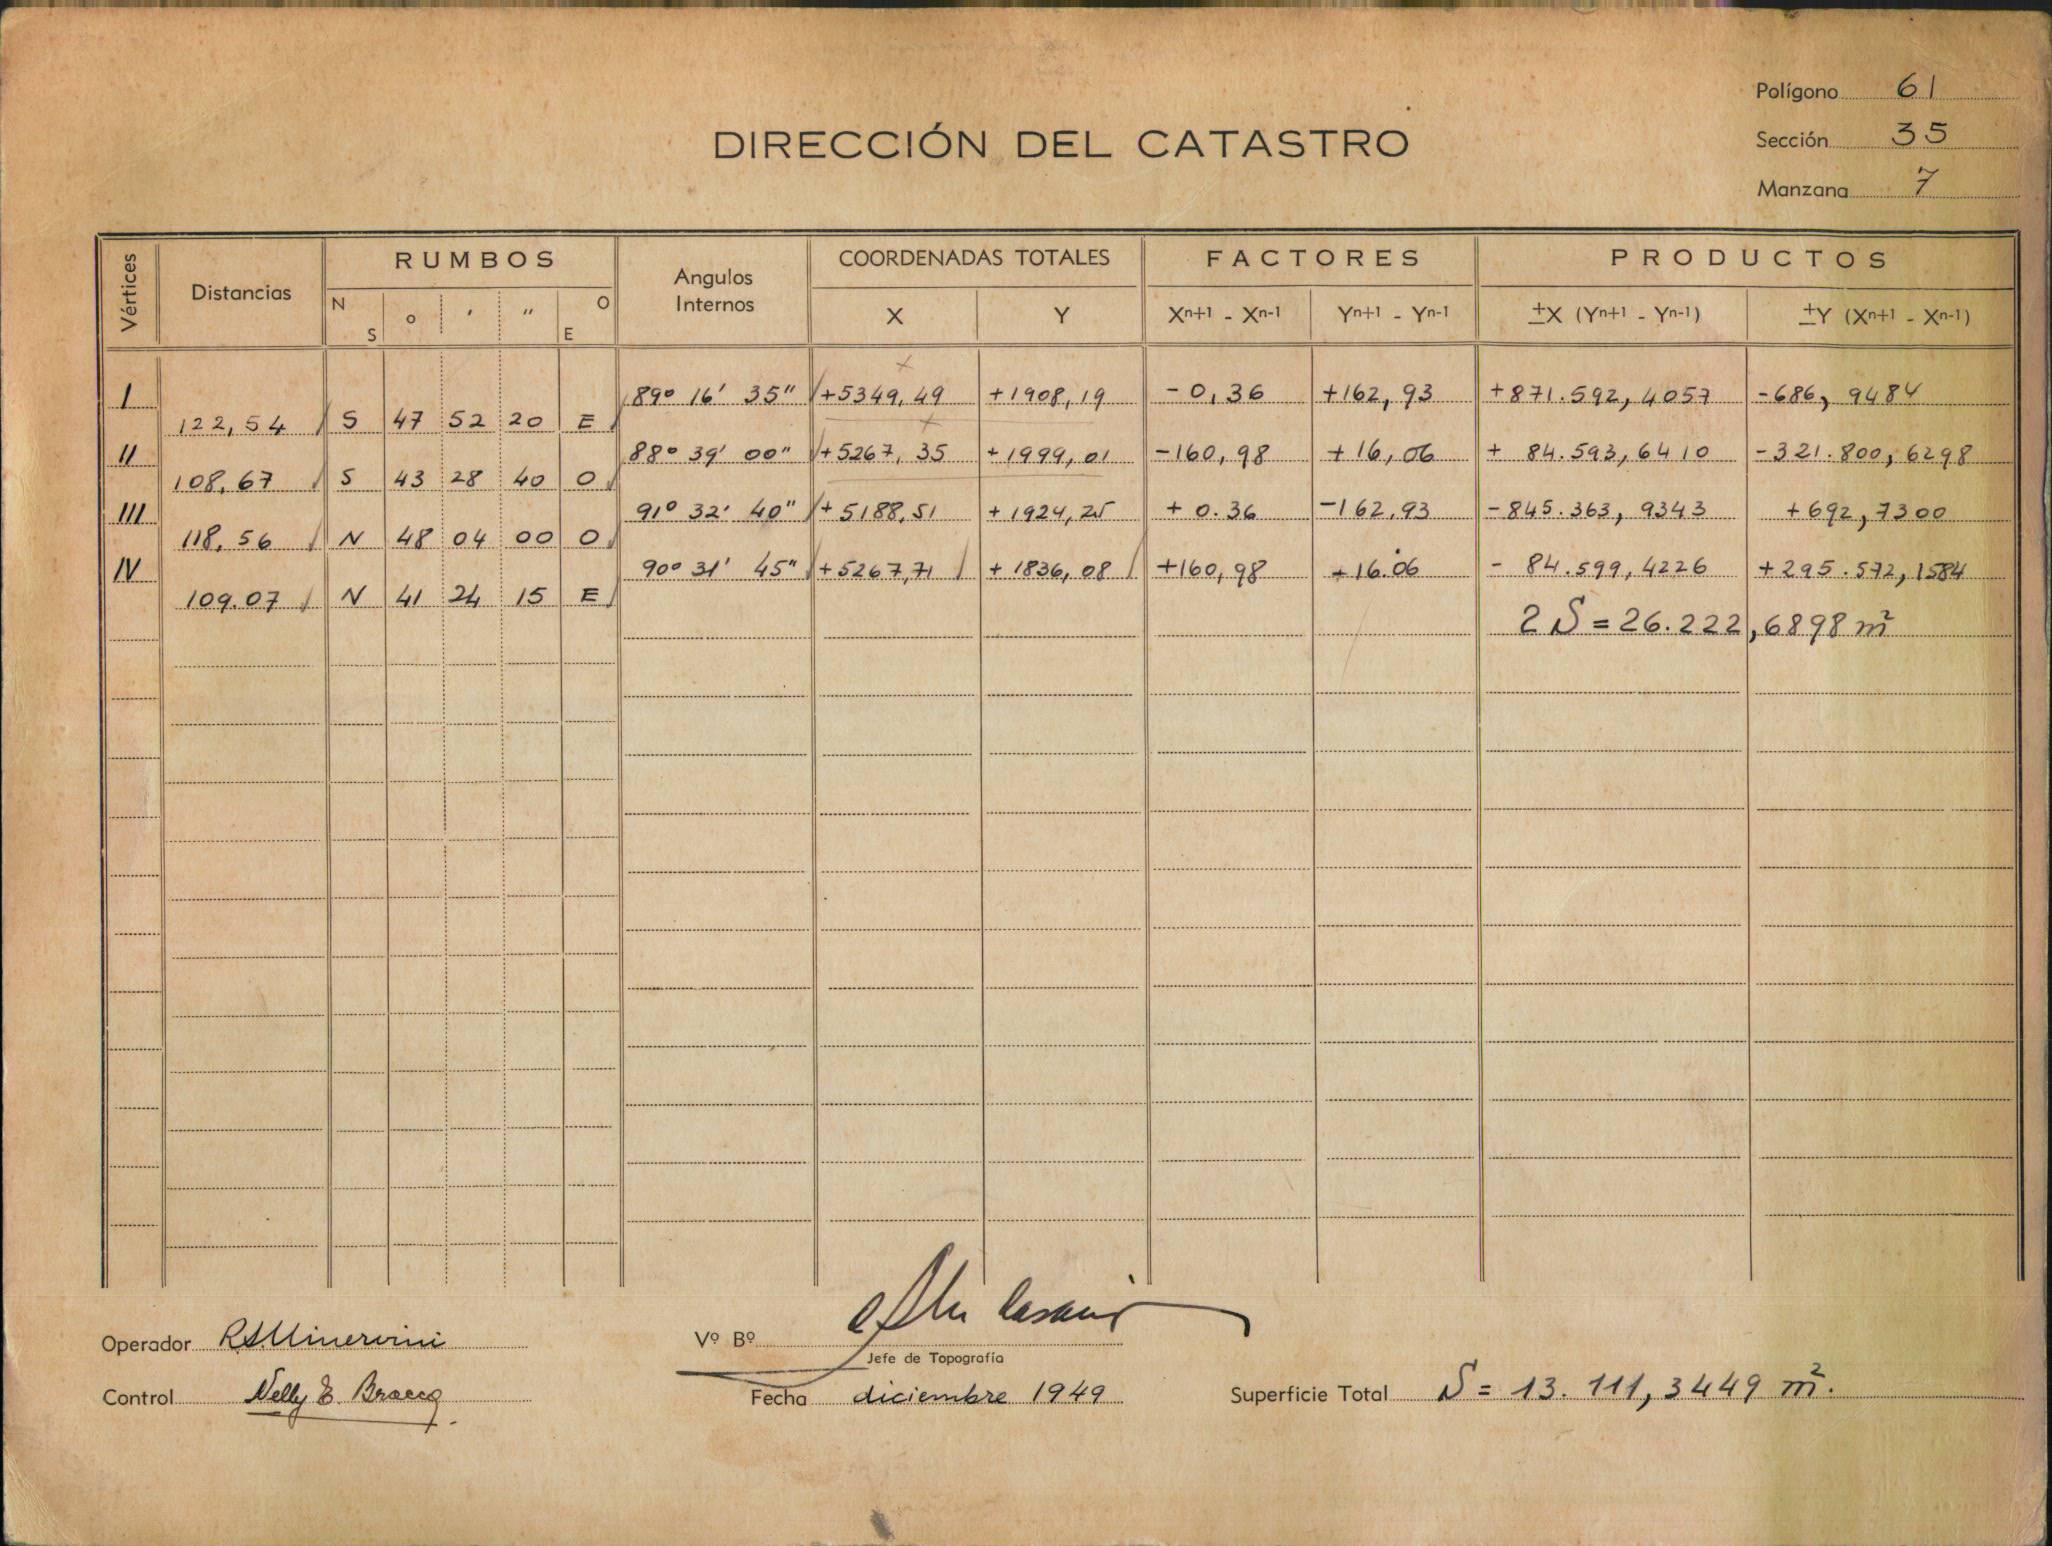 Polígono 61
DIRECCIÓN DEL CATASTRO
Sección 35
Manzana 7
Vértices Distancias RUMBOS Angulos Internos COORDENADAS TOTALES FACTORES PRODUCTOS
N S o ' " O E X Y Xn+1 - Xn-1 Yn+1 - Yn-1 ±X (Yn+1 - Yn-1) ±Y (Xn+1 - Xn-1)
I 89° 16' 35" +5349,49 +1908,19 -0,36 +162,93 +871.592,4057 -686,9484
122,54 S 47 52 20 E
II 88° 39' 00" +5267,35 +1999,01 -160,98 +16,06 + 84.593,6410 -321.800,6298
108,67 S 43 28 40 O
III 91° 32' 40" +5188,51 +1924,25 +0.36 -162,93 -845.363,9343 +692,7300
118,56 N 48 04 00 O
IV 90° 31' 45" +5267,71 +1836,08 +160,98 -16.06 - 84.599,4226 +295.572,1584
109.07 N 41 24 15 E
2S = 26.222,6898 m²
Operador R.S.Minervini Vº Bº
Jefe de Topografía
Control Nelly E. Bracco Fecha diciembre 1949 Superficie Total S = 13.111,3449 m².